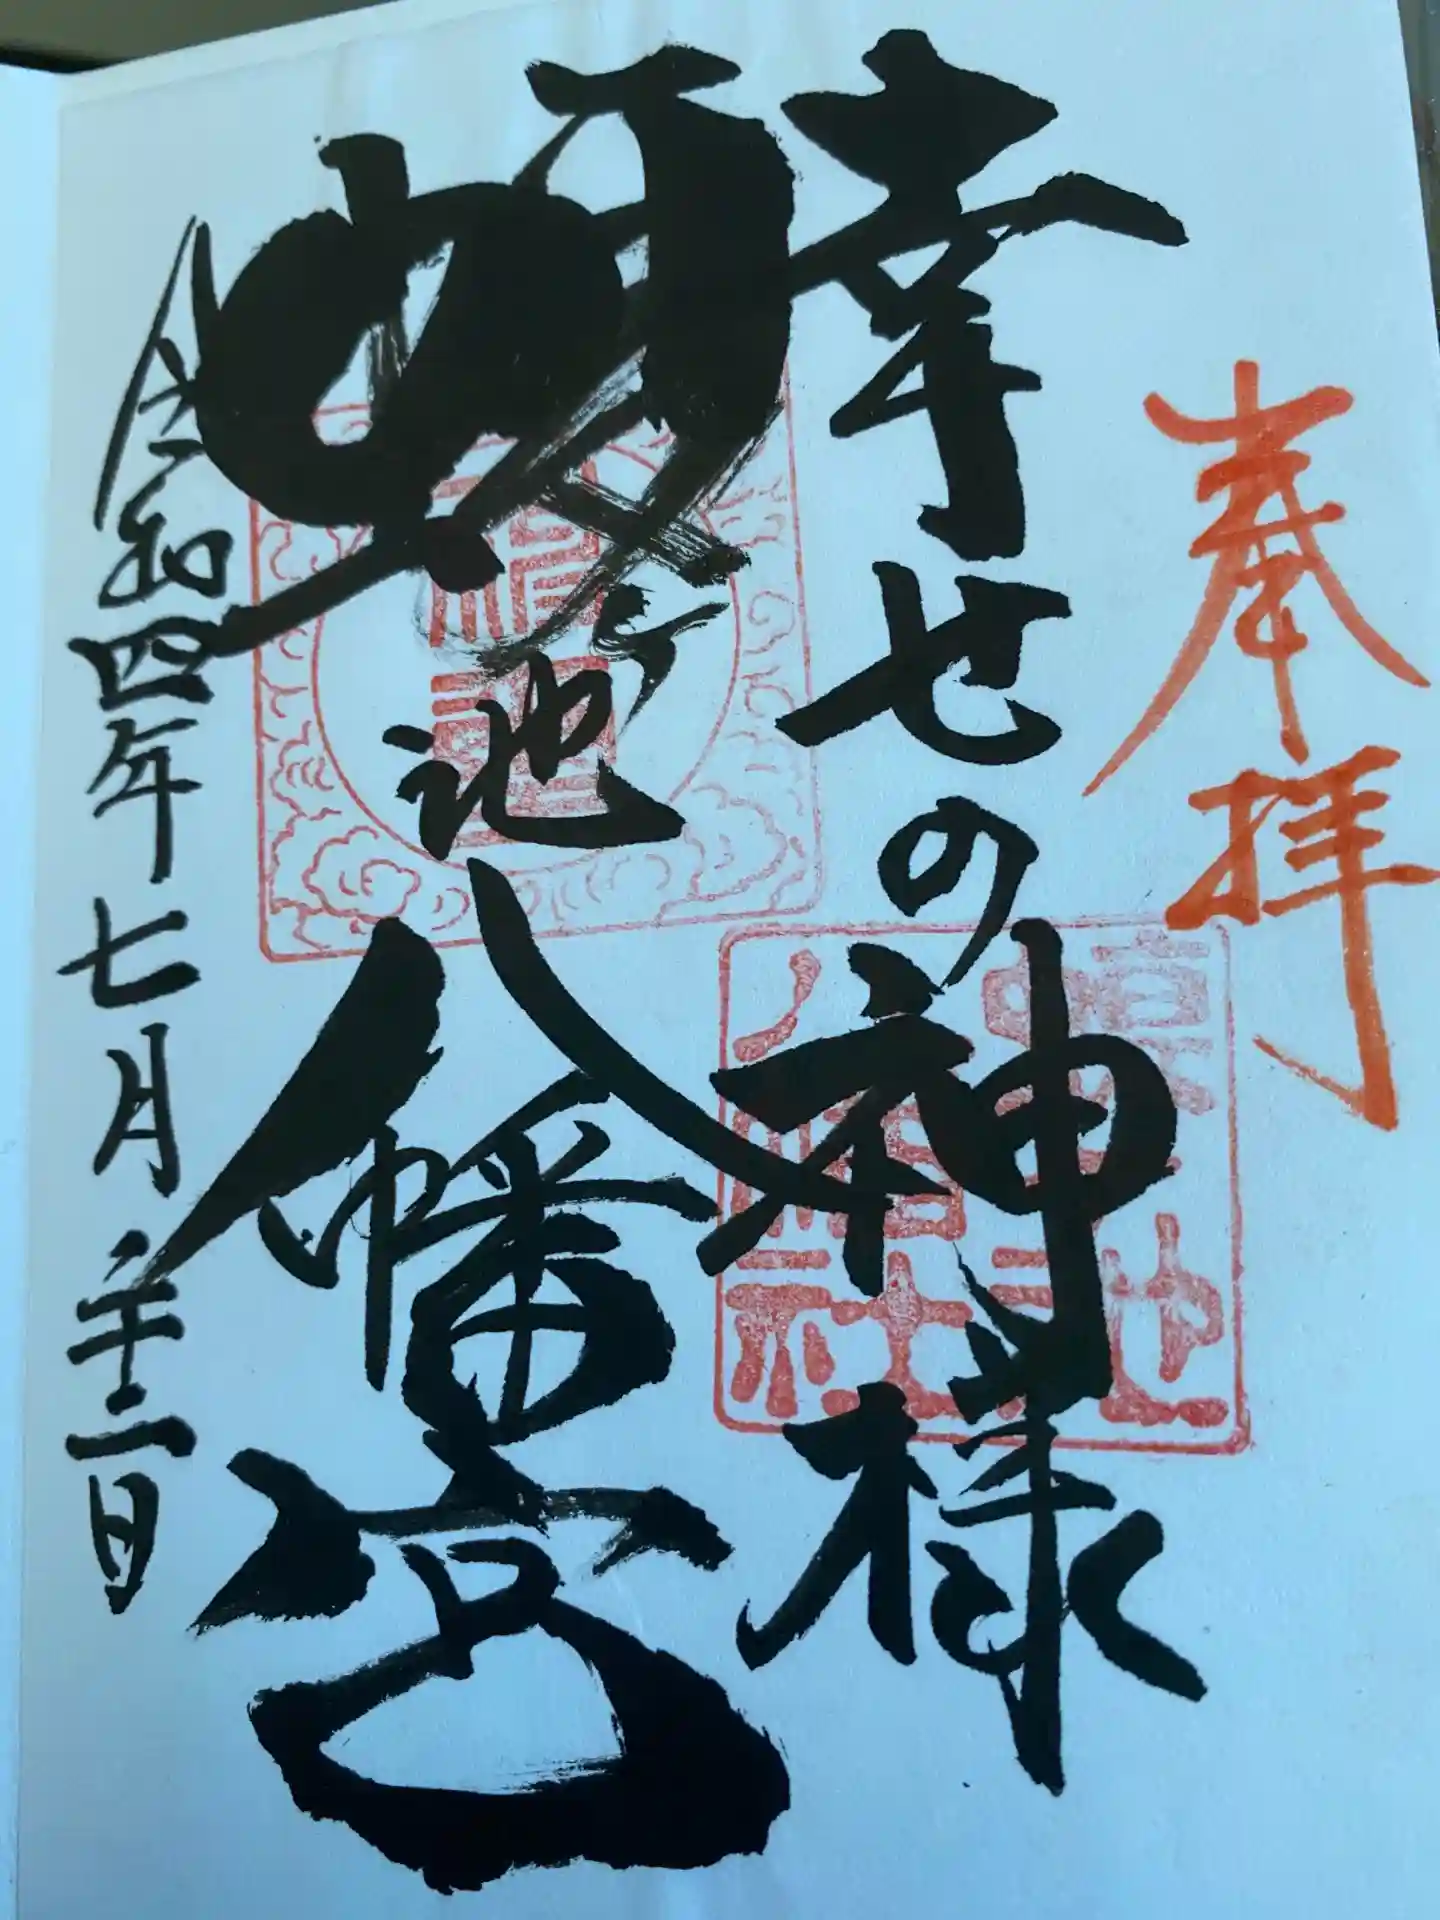 奉拝
幸せの神様
蝮ヶ池八幡宮
令和四年七月二十二日